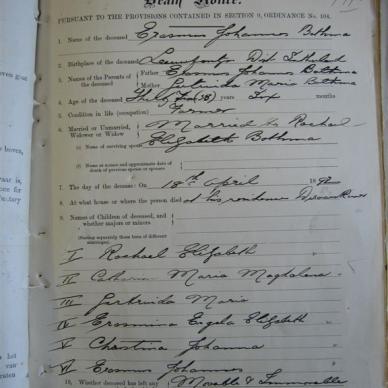 Death Notice.
PURSUANT TO THE PROVISIONS CONTAINED IN SECTION 9, ORDINANCE No. 104.
1. Name of the deceased Erasmus Johannes Bothma
2. Birthplace of the deceased Dist Tulbagh
3. Names of the Parents of the deceased
Father Erasmus Johannes Bothma
Mother Gertruida Maria Bothma
4. Age of the deceased (38) years Six months
5. Condition in life (occupation) Farmer
6. Married or Unmarried, Widower or Widow Married to Rachael
(1) Name of surviving spouse Elizabeth Bothma
(2) Name or names and approximate date of death of previous spouse or spouses
7. The day of the decease: On 18th April 18
8. At what house or where the person died at his residence
9. Names of Children of deceased, and whether majors or minors
(Stating separately those born of different marriages).
I Rachael Elizabeth
II Catharina Maria Magdalena
III Gertruida Maria
IV Erasmina Engela Elizabeth
V Christina Johanna
VI Erasmus Johannes
10. Whether deceased has left any Movable & Immovable